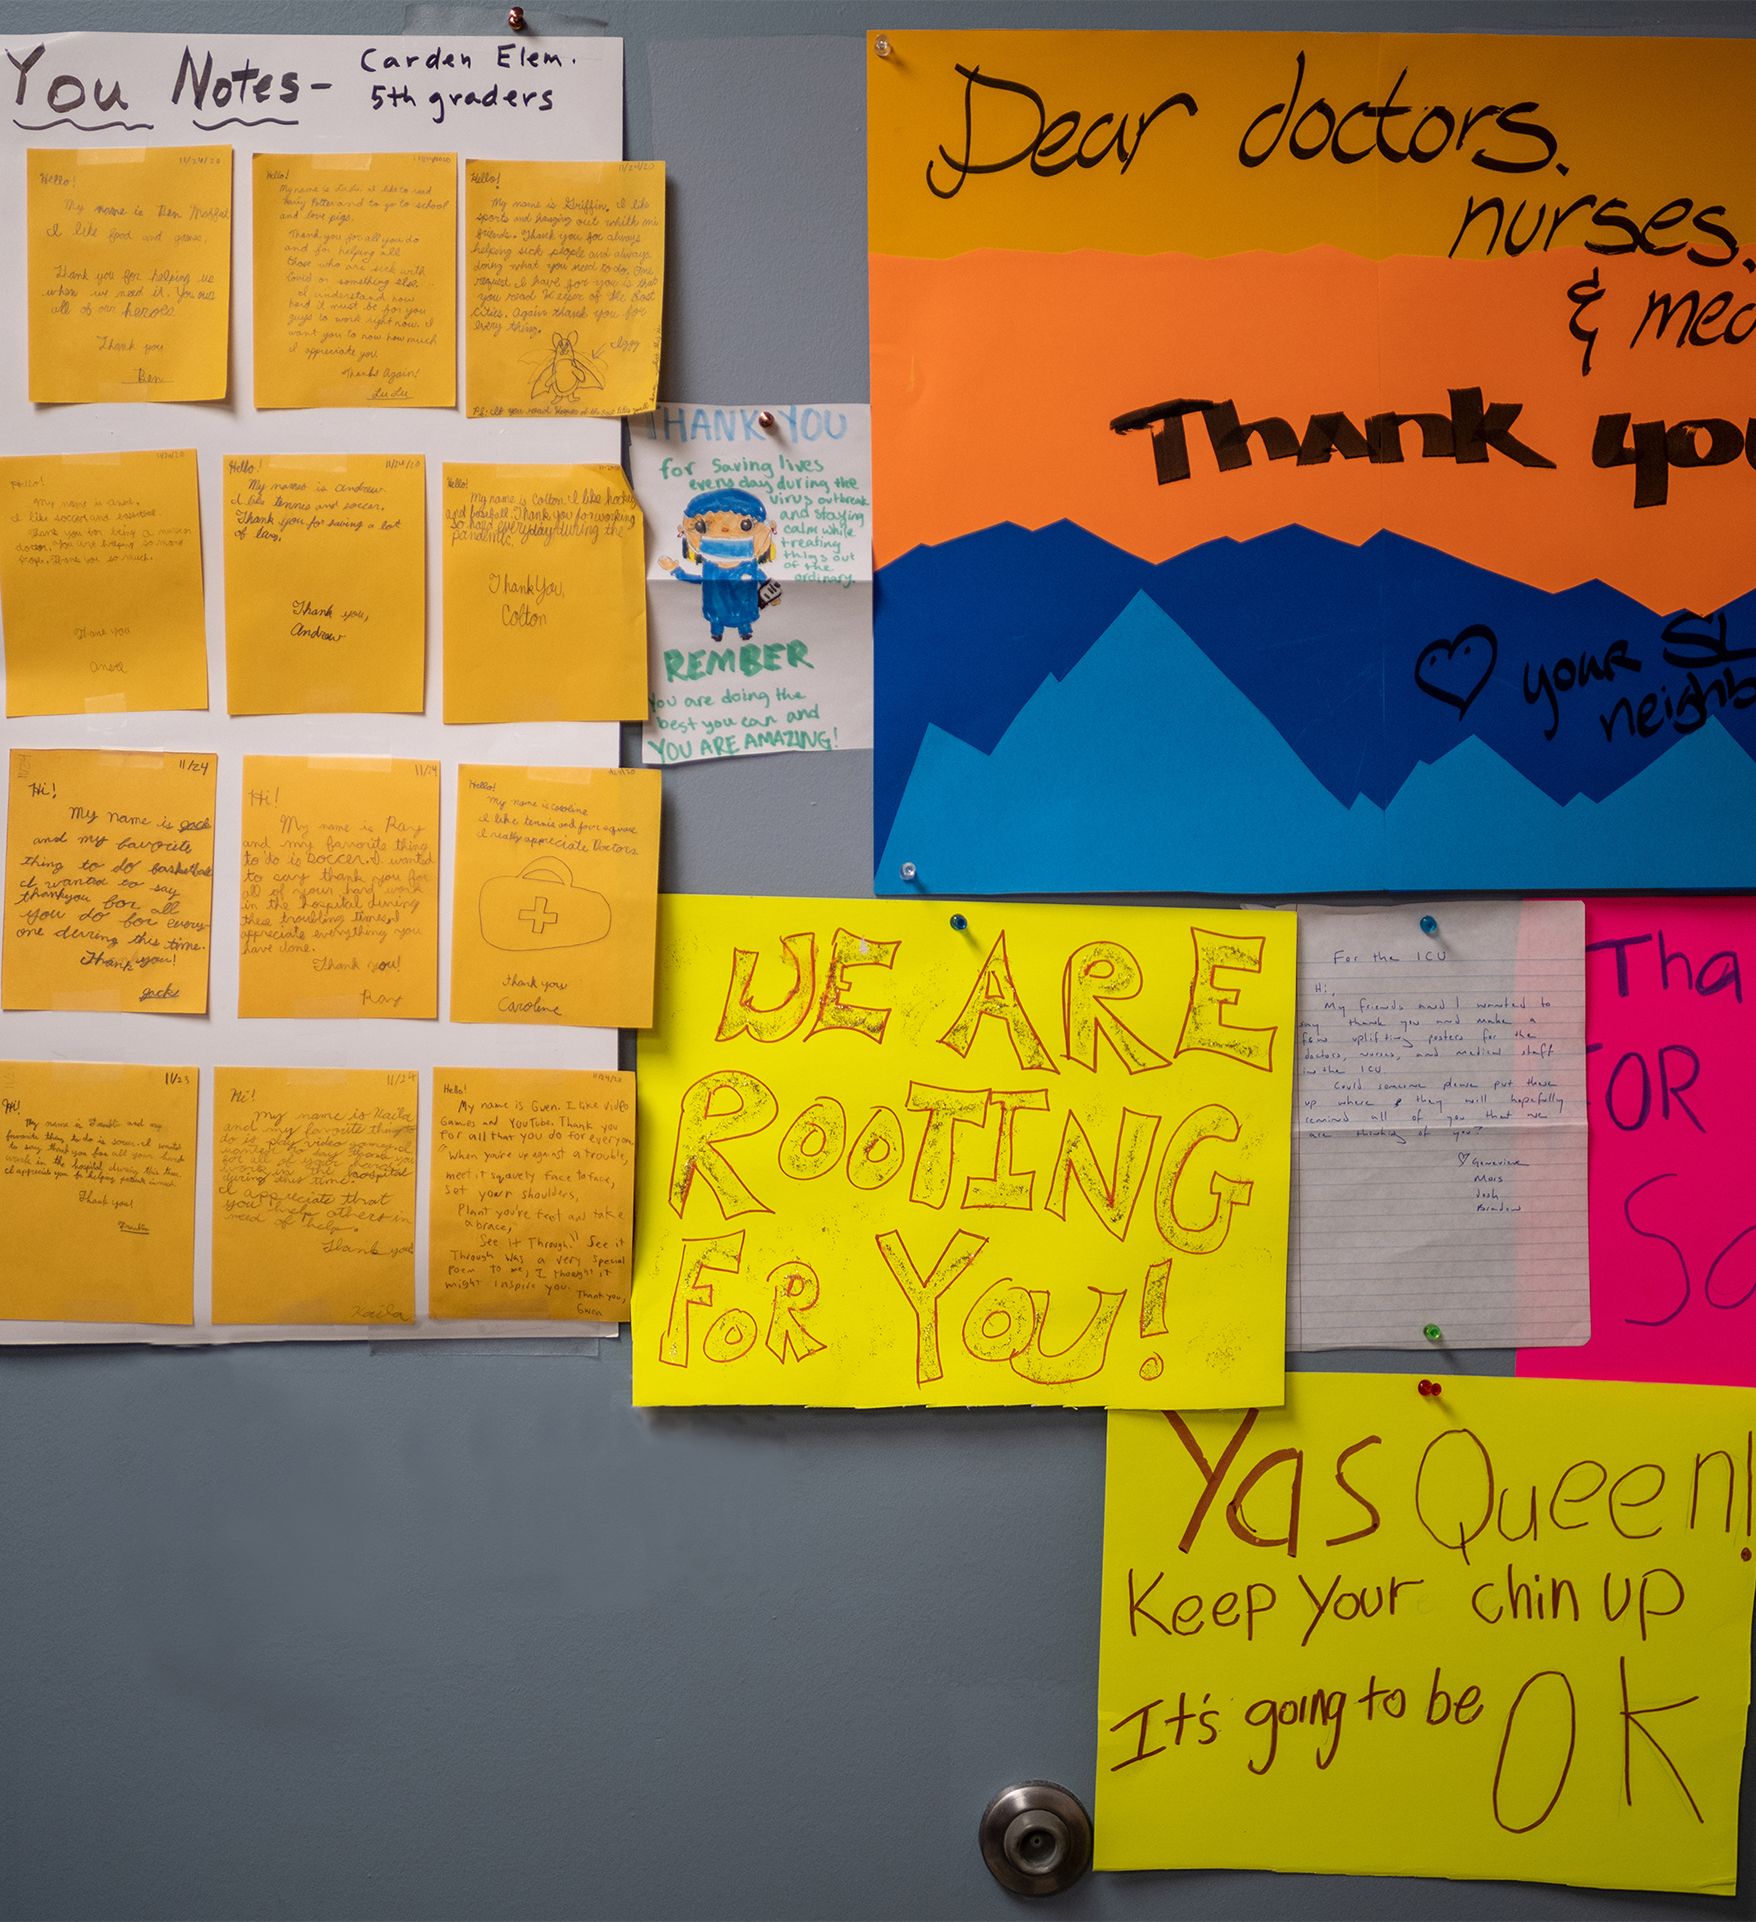 You Notes-
Carden Elem.
5th graders
11/24/20
Hello!
My name is Ben
I like food and
Thank you for helping us
when we need it. You are
all of our heroes
Thank you
Ben
Hello!
My name is LuLu. I like to read
Harry Potter and to go to school
and love pigs.
Thank you for all you do
and for helping all
those who are sick with
Covid or something else.
I understand how
hard it must be for you
guys to work right now. I
want you to now how much
I appreciate you
Thanks Again!
LuLu
11/24/20
Hello!
My name is Griffin. I like
sports and hanging out
friends. Thank you for always
helping sick people and always
doing what you need to do. One
request I have for you is that
you read Keeper of the Lost
Cities. Again thank you for
every thing.
Iggy
11/24/20
Hello!
My name is
I like soccer and
Thank you for being a
doctor. You are helping so many
Thank you so much.
Thank you
11/24/20
Hello!
My name is Andrew
I like tennis and soccer.
Thank you for saving a lot
of lives.
Thank you,
Andrew
Hello!
My name is Colton I like hockey
and baseball. Thank you for working
so hard everyday during the
pandemic.
Thank You,
Colton
11/24
Hi!
My name is Jack
and my favorite
thing to do basketball
I wanted to say
thankyou for all
you do for every-
one during this time.
Thank you!
Jack
11/24
Hi!
My name is Ray
and my favorite thing
to do is soccer. I wanted
to say thank you for
all of your hard work
in the hospital during
these troubling times. I
appreciate everything you
have done.
Thank you!
Ray
Hello!
My name is Caroline
I like tennis and four square
I really appreciate Doctors
thank you
Caroline
11/23
Hi!
My name is and my
favorite thing to do is I want
to say thank you for all your hard
work in the hospital during this time.
I appreciate you for helping patients in need.
Thank you!
11/24
Hi!
my name is Kaila
and my favorite thing to
do is play video games. I
wanted to say thank you
for all of your hard
work in the hospital
during this time.
I appreciate that
you help others in
need of help.
Thank you!
Kaila
11/24/20
Hello!
My name is Gwen. I like video
Games and YouTube. Thank you
for all that you do for everyone
"When you're up against a trouble,
meet it squarely face to face,
Set your shoulders,
Plant you're feet and take
a brace,
See it Through." See it
Through was a very special
Poem to me, I thought it
might inspire you.
Thank you,
Gwen
THANK YOU
for saving lives
every day during the
virus outbreak
and staying
calm while
treating
things out
of the
ordinary.
REMBER
You are doing the
best you can and
YOU ARE AMAZING!
Dear doctors,
nurses,
& med
Thank you
your SL
neighb
WE ARE
ROOTING
FOR YOU!
For the ICU
Hi,
My friends and I wanted to
say thank you and make a
few uplifting posters for the
doctors, nurses, and medical staff
in the ICU.
Could someone please put these
up where they will hopefully
remind all of you that we
are thinking of you?
♡ Genevieve
Mars
Josh
Brandon
Tha
OR
So
Yas Queen!
Keep Your chin up
It's going to be OK